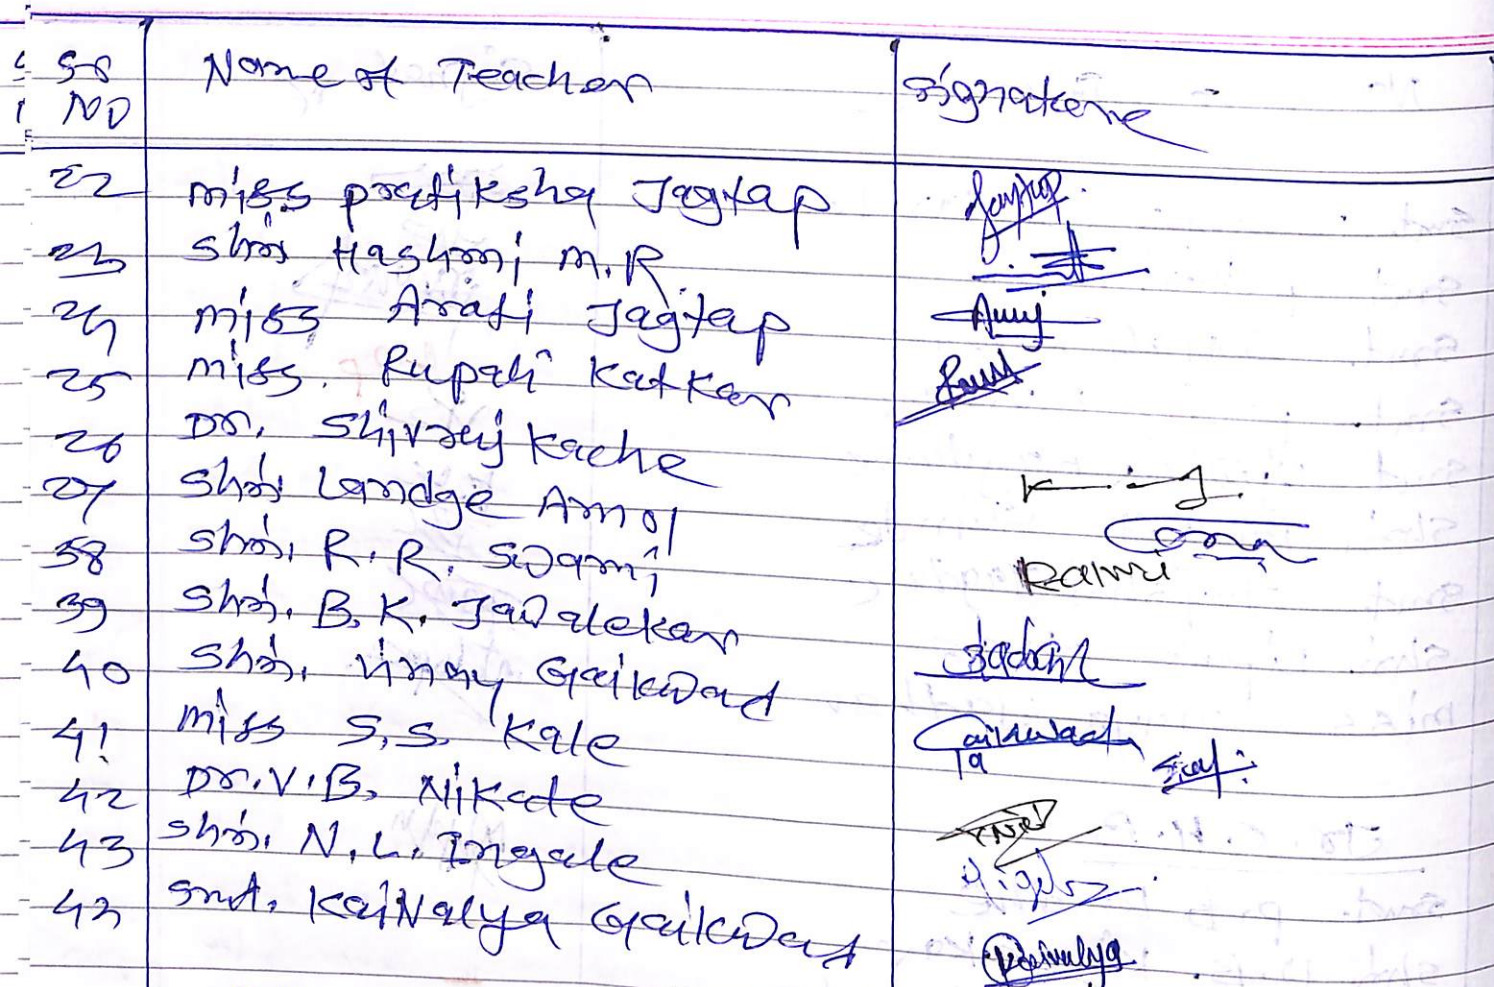 Sr No Name of Teacher Signature
22 Miss Pratiksha Jagtap Jagtap
23 Shri Hashmi M.R.
24 Miss Arati Jagtap
25 Miss. Rupali Katkar
26 Dr. Shivraj Kache
27 Shri Landge Amol
38 Shri. R. R. Swami
39 Shri. B. K. Jawalekar
40 Shri. Vinay Gaikwad
41 Miss S. S. Kale Gaikwad
42 Dr. V. B. Nikate
43 Shri. N. L. Ingale
Smt. Kaivalya Gaikwad Kaivalya